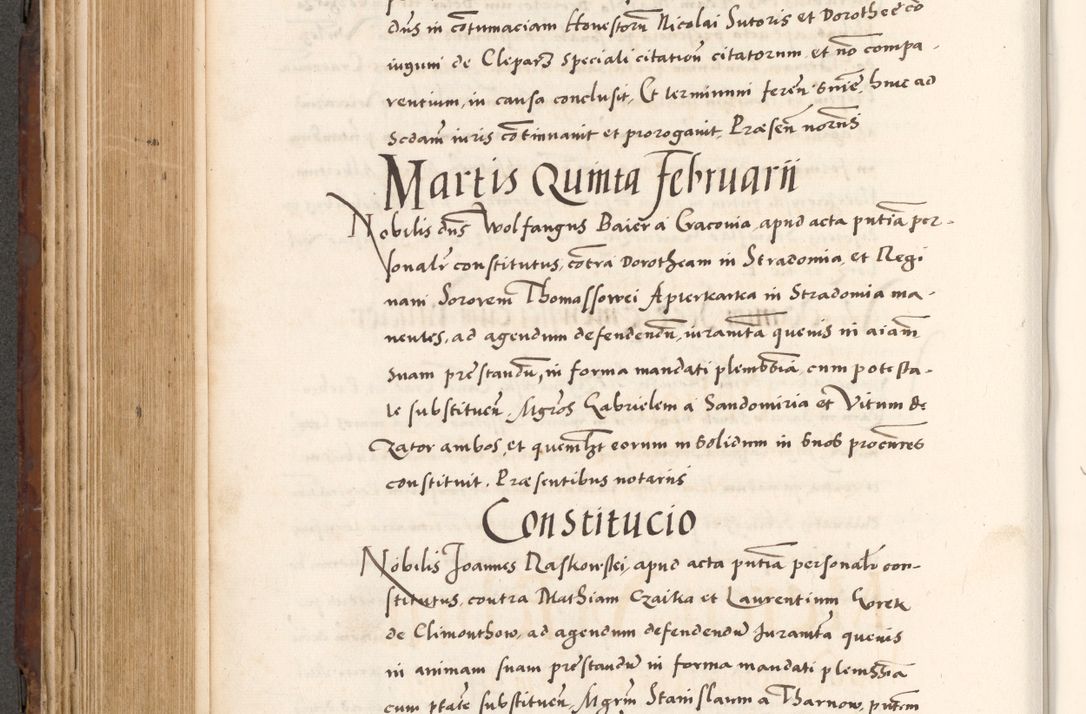 dns in cotumaciam Honestorū Nicolai Sutoris et Dorothee co
iugum de Clepars speciali citation citatorum et nō compa-
rentium, in causa conclusit, Et terminum feren snīe, hinc ad
Scdam iuris cōtinuauit et prorogauit, Præsen notrīs
Martis Quinta Februarii
Nobilis dns Wolfangus Baier a Cracouia, apud acta pntīa per-
sonalr constitutus, cōtra Dorotheam in Stradomia, et Regi
nam Sororem Thomassowei Aptekarka in Stradomia ma-
nentes, ad agendum defendendū, iuramta queuis in aīam
suam prestandū, in forma mandati plenissīa, cum potesta-
te substituen, Mgros Gabrielem a Sandomiria et Vitum de
Zator ambos, et quemlibt eorum in solidum in suos procures
constituit, Præsentibus notariis
Constitucio
Nobilis Joannes Raskowskei, apud acta pntīa personalr con-
stitutus, contra Mathiam Czaika et Laurentium Gorek
de Climonthow, ad agendum defendendū Juramta queuis
in animam suam prestandū in forma mandati plenissīa
cum ptate substituen, Mgrm Stanislaum a Tharnow, pntem